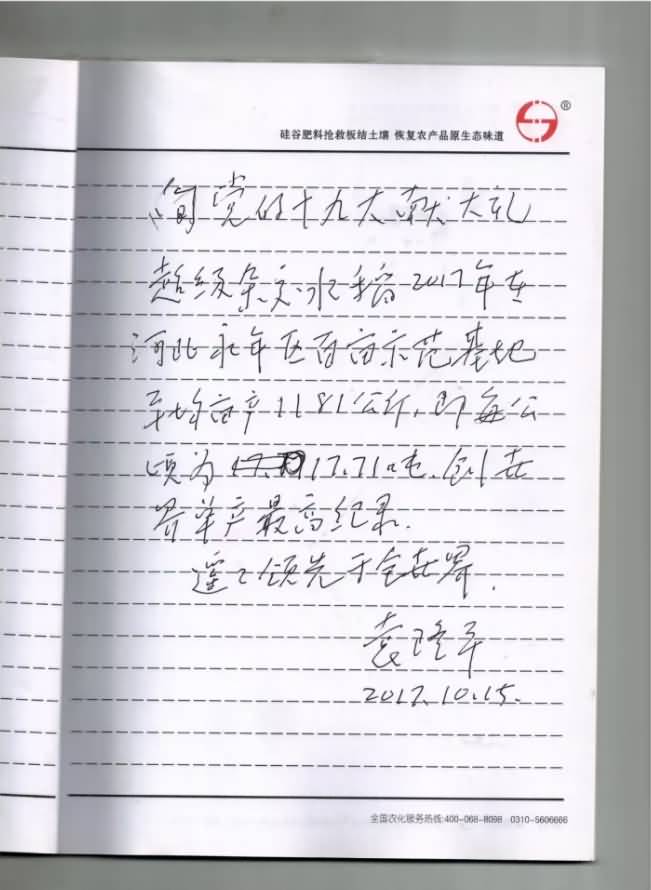 硅谷肥料抢救板结土壤 恢复农产品原生态味道
®
向党的十九大献大礼
超级杂交水稻2017年在
河北永年区百亩示范基地
平均亩产1181公斤,即每公
顷为17.71吨,创世
界单产最高纪录.
遥遥领先于全世界.
袁隆平
2017.10.15.
全国农化服务热线:400-068-8098 0310-5606666